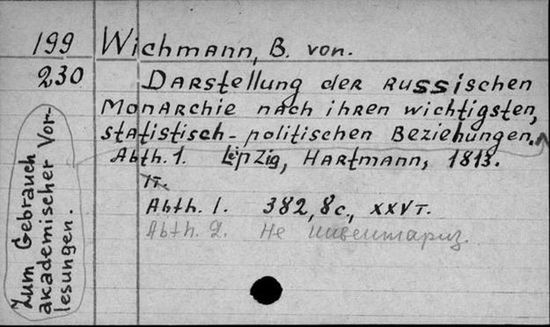 199 Wichmann, B. von.
230 Darstellung der russischen
Monarchie nach ihren wichtigsten,
statistisch-politischen Beziehungen.
Abth. 1. Leipzig, Hartmann, 1813.
II.
Abth. 1. 382, 8c., XXVT.
Abth. 2. Не инвентариз.
Zum Gebrauch
akademischer Vor-
lesungen.